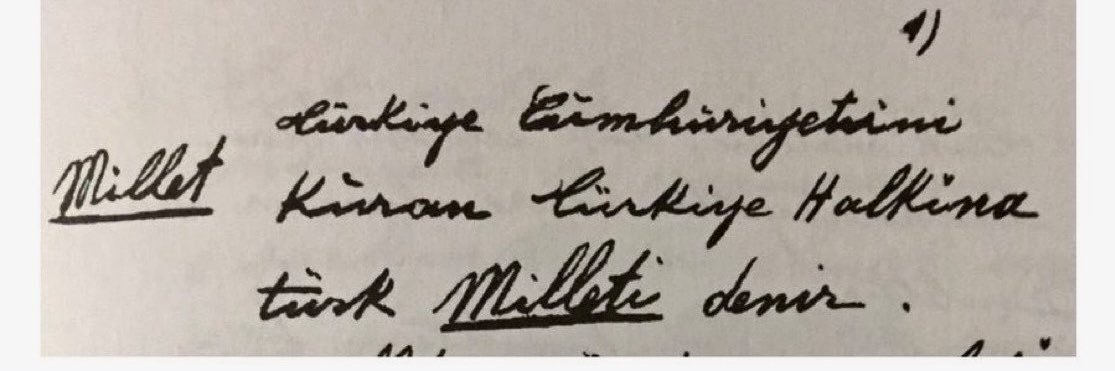 1)
Türkiye Cümhuriyetini
Millet Kuran Türkiye Halkına
türk Milleti denir .